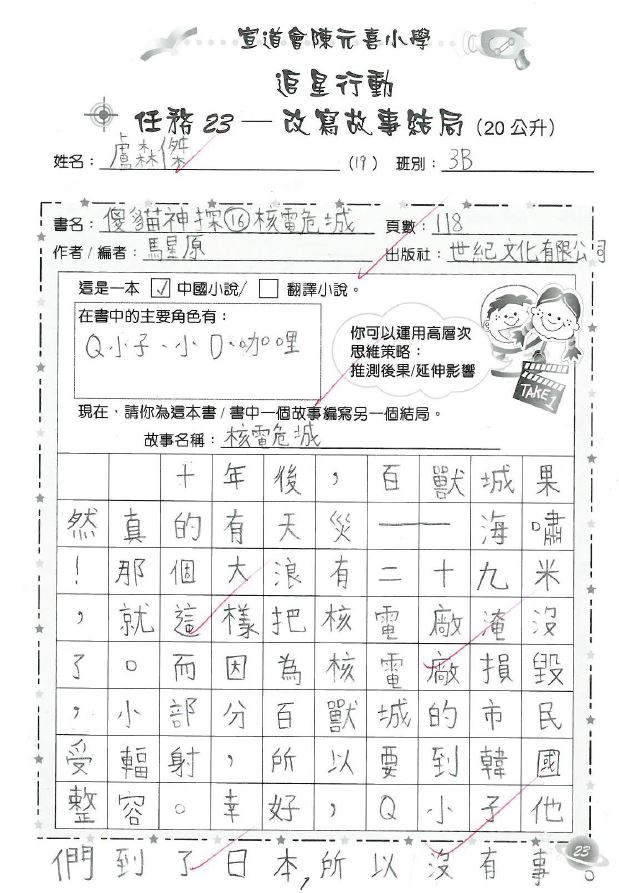 宣道會陳元喜小學
追星行動
任務 23 — 改寫故事結局 (20 公升)
姓名： 盧森傑 (19) 班別： 3B
書名： 傻貓神探⑯核電危城 頁數： 118
作者 / 編者： 馬星原 出版社： 世紀文化有限公司
這是一本 ☑ 中國小說/ ☐ 翻譯小說。
在書中的主要角色有：
Q小子、小D、咖哩
你可以運用高層次
思維策略：
推測後果/延伸影響
TAKE 1
現在，請你為這本書 / 書中一個故事編寫另一個結局。
故事名稱： 核電危城
十年後，百獸城果
然真的有天災——海嘯
！那個大浪有二十九米
，就這樣把核電廠淹沒
了。而因為核電廠損毀
，小部分百獸城的市民
受輻射，所以要到韓國
整容。幸好，Q小子他
們到了日本，所以沒有事。
23